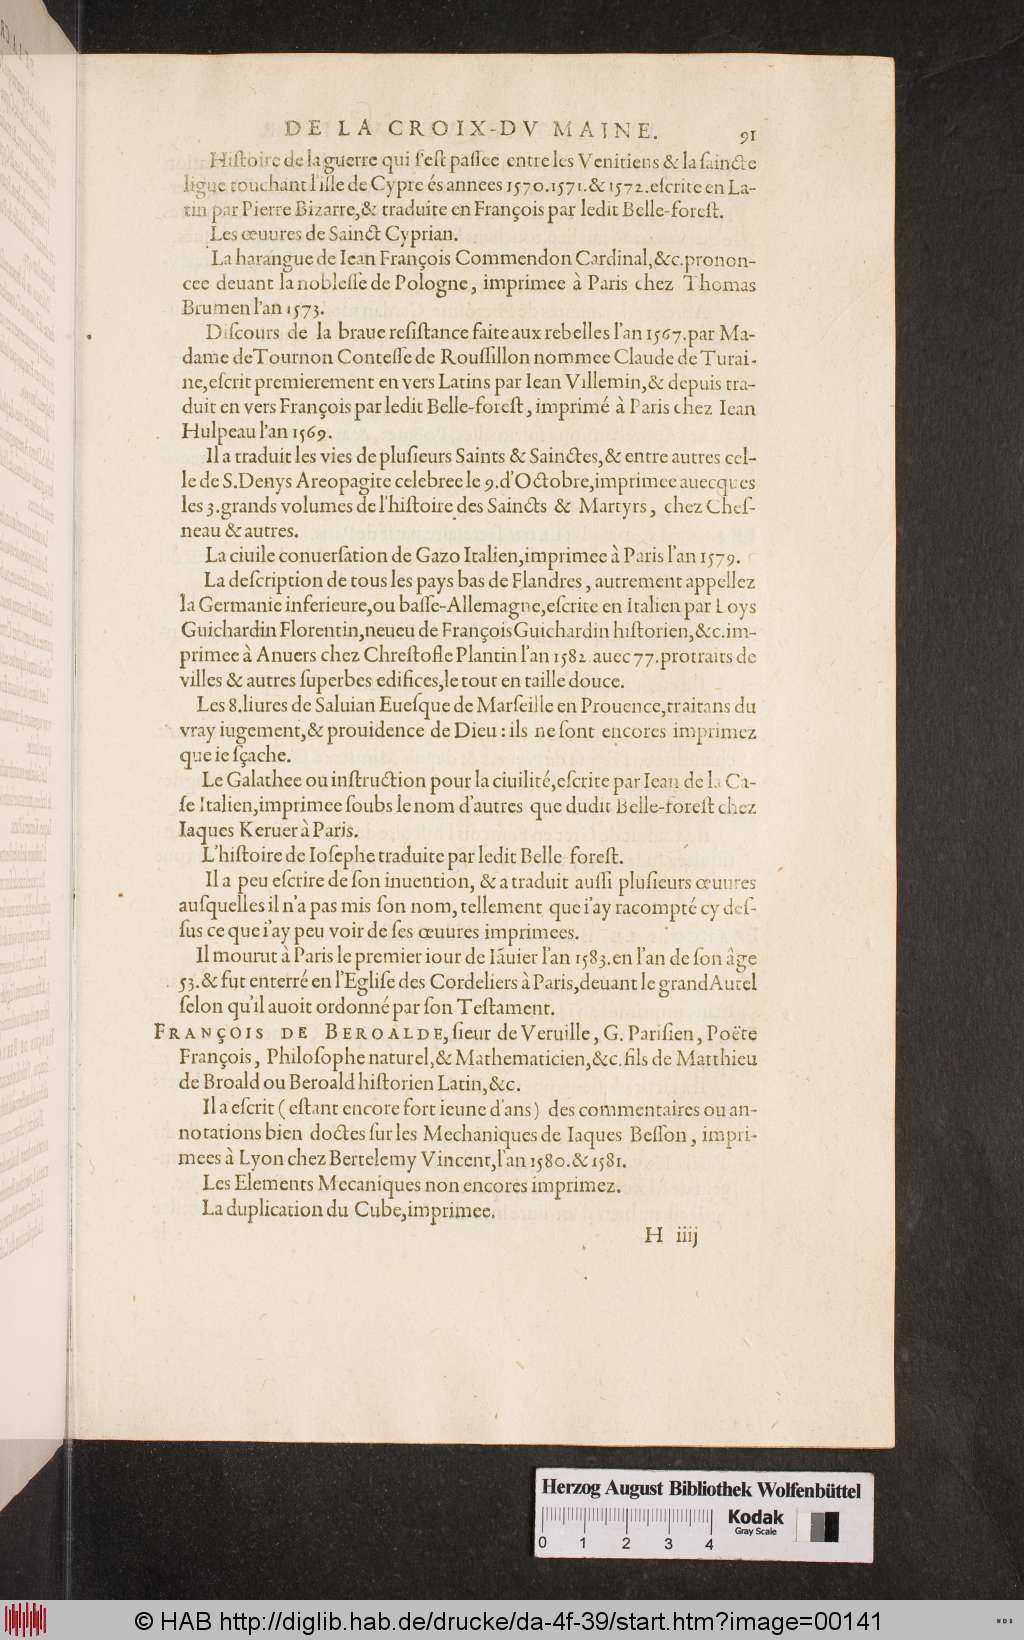 DE LA CROIX-DV MAINE. 91
Hiſtoire de la guerre qui ſ'eſt paſſee entre les Venitiens & la ſaincte
ligue touchant l'iſle de Cypre és annees 1570. 1571. & 1572. eſcrite en La-
tin par Pierre Bizarre, & traduite en François par ledit Belle-foreſt.
Les œuures de Sainct Cyprian.
La harangue de Iean François Commendon Cardinal, &c. pronon-
cee deuant la nobleſſe de Pologne, imprimee à Paris chez Thomas
Brumen l'an 1573.
Diſcours de la braue reſiſtance faite aux rebelles l'an 1567. par Ma-
dame de Tournon Conteſſe de Rouſſillon nommee Claude de Turai-
ne, eſcrit premierement en vers Latins par Iean Villemin, & depuis tra-
duit en vers François par ledit Belle-foreſt, imprimé à Paris chez Iean
Hulpeau l'an 1569.
Il a traduit les vies de pluſieurs Saints & Sainctes, & entre autres cel-
le de S. Denys Areopagite celebree le 9. d'Octobre, imprimee auecques
les 3. grands volumes de l'hiſtoire des Saincts & Martyrs, chez Cheſ-
neau & autres.
La ciuile conuerſation de Gazo Italien, imprimee à Paris l'an 1579.
La deſcription de tous les pays bas de Flandres, autrement appellez
la Germanie inferieure, ou baſſe-Allemagne, eſcrite en Italien par Loys
Guichardin Florentin, neueu de François Guichardin hiſtorien, &c. im-
primee à Anuers chez Chreſtofle Plantin l'an 1582. auec 77. protraits de
villes & autres ſuperbes edifices, le tout en taille douce.
Les 8. liures de Saluian Eueſque de Marſeille en Prouence, traitans du
vray iugement, & prouidence de Dieu : ils ne ſont encores imprimez
que ie ſçache.
Le Galathee ou inſtruction pour la ciuilité, eſcrite par Iean de la Ca-
ſe Italien, imprimee ſoubs le nom d'autres que dudit Belle-foreſt chez
Iaques Keruer à Paris.
L'hiſtoire de Ioſephe traduite par ledit Belle-foreſt.
Il a peu eſcrire de ſon inuention, & a traduit auſſi pluſieurs œuures
auſquelles il n'a pas mis ſon nom, tellement que i'ay racompté cy deſ-
ſus ce que i'ay peu voir de ſes œuures imprimees.
Il mourut à Paris le premier iour de Iãuier l'an 1583. en l'an de ſon âge
53. & fut enterré en l'Egliſe des Cordeliers à Paris, deuant le grand Autel
ſelon qu'il auoit ordonné par ſon Teſtament.
FRANÇOIS DE BEROALDE, ſieur de Veruille, G. Pariſien, Poëte
François, Philoſophe naturel, & Mathematicien, &c. fils de Matthieu
de Broald ou Beroald hiſtorien Latin, &c.
Il a eſcrit (eſtant encore fort ieune d'ans) des commentaires ou an-
notations bien doctes ſur les Mechaniques de Iaques Beſſon, impri-
mees à Lyon chez Bertelemy Vincent, l'an 1580. & 1581.
Les Elements Mecaniques non encores imprimez.
La duplication du Cube, imprimee.
H iiij
Herzog August Bibliothek Wolfenbüttel
0 1 2 3 4
Kodak
Gray Scale
© HAB http://diglib.hab.de/drucke/da-4f-39/start.htm?image=00141